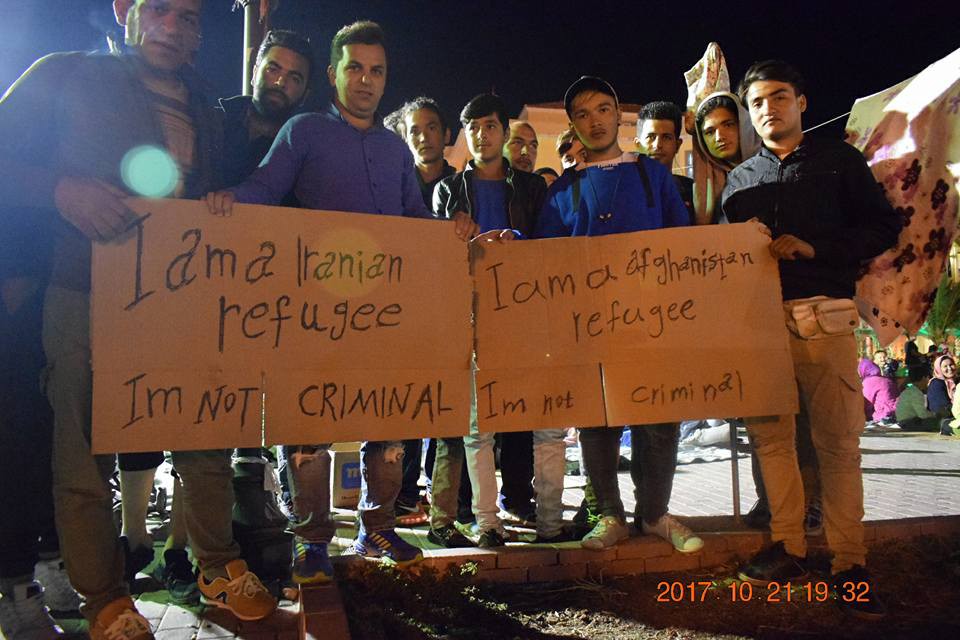 I am a Iranian
refugee
Im NOT CRIMINAL
I am a afghanistan
refugee
Im not criminal
2017 10 21 19 32